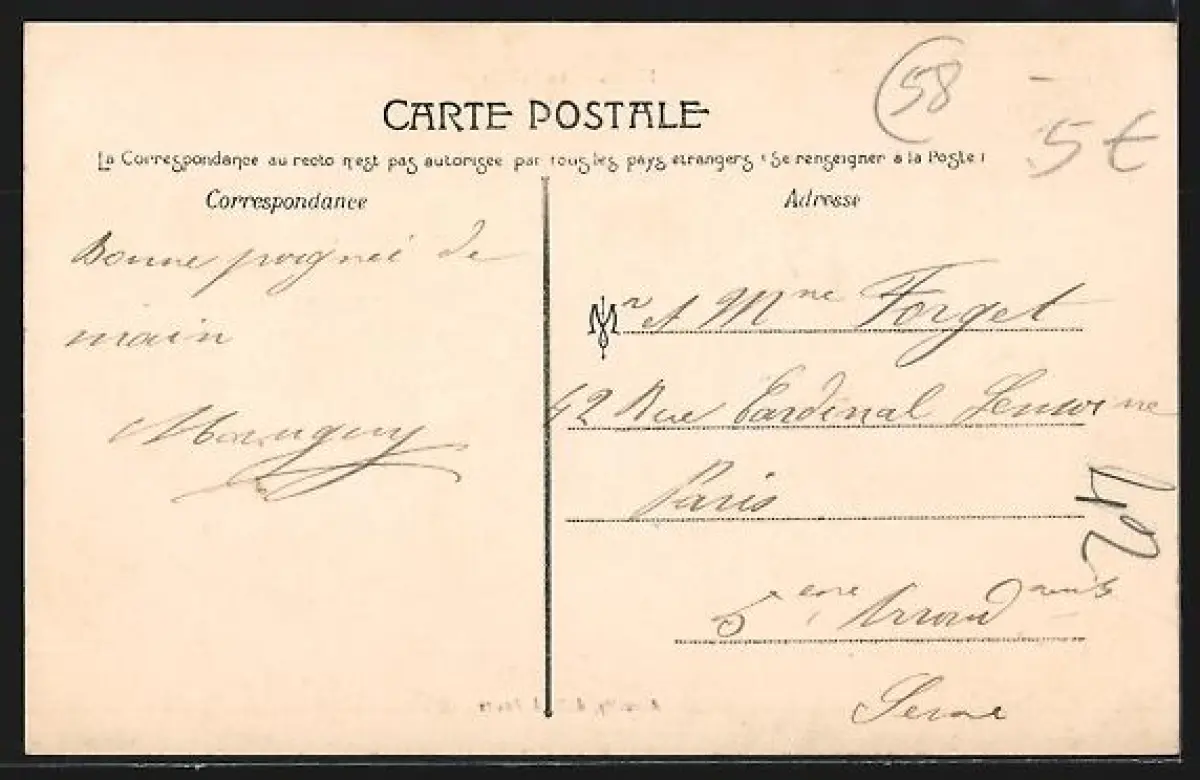 58
5 €
CARTE POSTALE
La Correspondance au recto n'est pas autorisée par tous les pays étrangers (Se renseigner à la Poste)
Correspondance
Bonne poigneé de
main
Adresse
Mr et Mme Forget
42 Rue Cardinal Lemoine
Paris
5eme Arrond
Seine
42